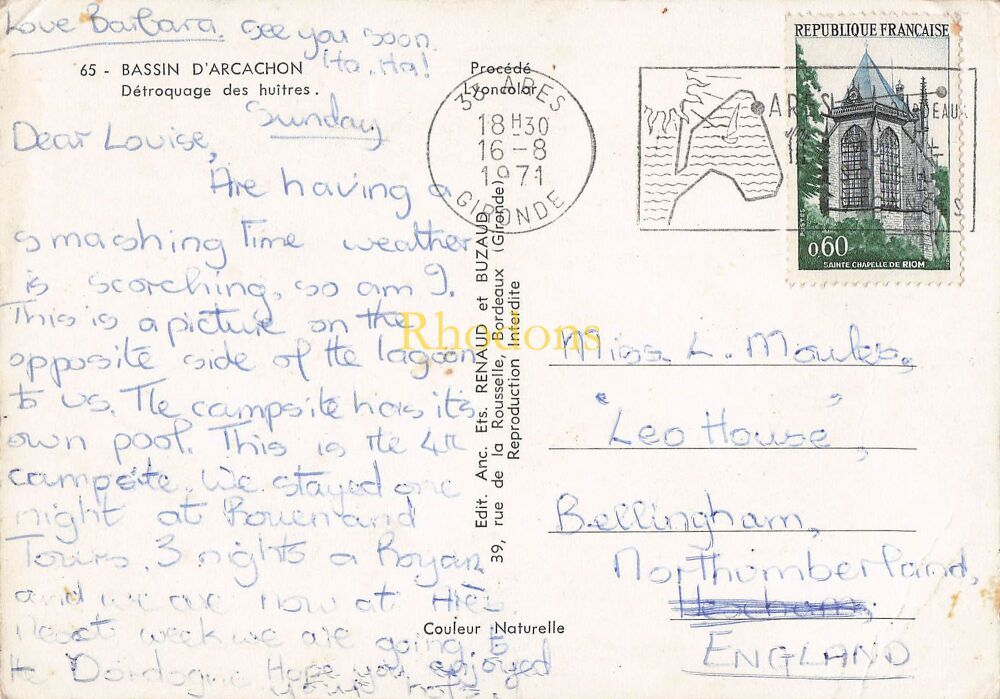 Love Barbara. See you soon.
Ha. Ha!
65 - BASSIN D'ARCACHON
Détroquage des huîtres.
Procédé
Lyoncolor
Sunday
Dear Louise,
Are having a
smashing Time weather
is scorching, so am I.
This is a picture on the
opposite side of the lagoon
to us. The campsite has its
own pool. This is the 4th
campsite. We stayed one
night at Rouen and
Tours. 3 nights a Royan
and we are now at
week we are going to
the Dordogne Hope you enjoyed
Couleur Naturelle
Edit. Anc. Ets. RENAUD et BUZAUD
39, rue de la Rousselle, Bordeaux (Gironde)
Reproduction Interdite
33 ARES
18H30
16-8
1971
GIRONDE
ARES
REPUBLIQUE FRANCAISE
0,60
SAINTE CHAPELLE DE RIOM
Rhodons
Miss L. Moules,
"Leo House",
Bellingham,
Northumberland,
Hexham,
ENGLAND